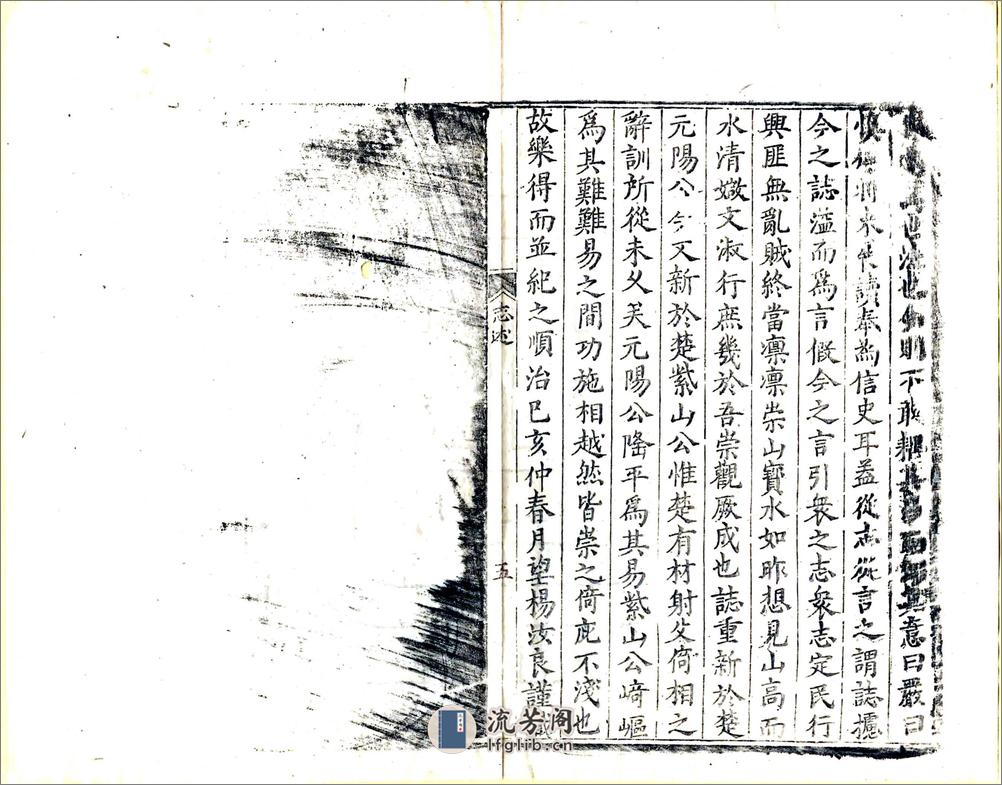 不敢意曰嚴曰
將來讀奉為信史耳葢從志從言之謂誌據
今之誌溢而為言假今之言引衆之志衆志定民行
興匪無亂賊終當凛凛崇山寶水如昨想見山高而
水清媺文淑行庶幾於吾崇觀厥成也誌重新於楚
元陽公今又新於楚紫山公惟楚有材射父倚相之
辭訓所從未乆矣元陽公隆平為其易紫山公崎嶇
為其難難易之間功施相越然皆崇之倚庇不淺也
故樂得而並紀之順治己亥仲春月望楊汝良謹
志述
五
流芳阁
lfglib.cn